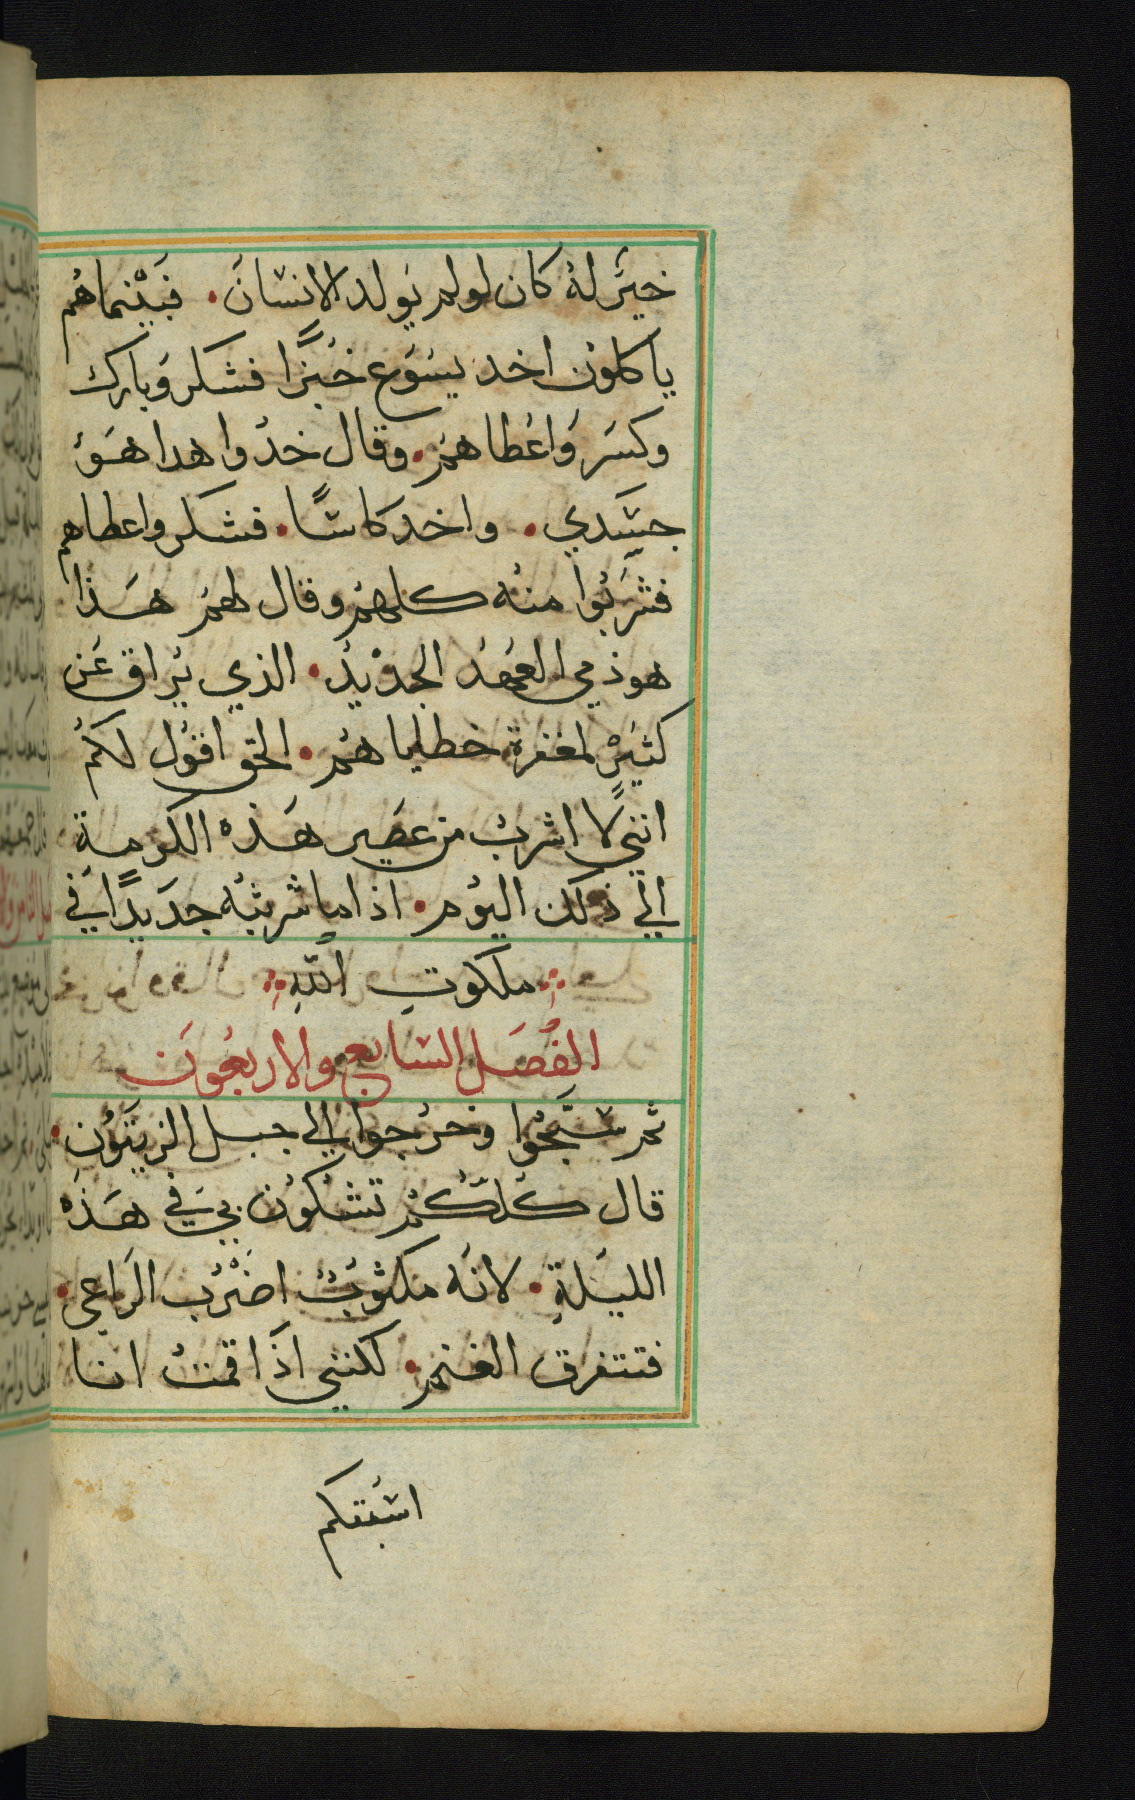 خيرٌ لهُ كان لو لم يَولد الانسان. فبَيْنما هُم
ياكلون اخد يسَوع خبزًا فشكر وَبارك
وكسَر وَاعْطاهمُ. وقال خدُوا هدا هَوُ
جسَدي. واخد كاسًا. فشكر واعطاهم
فشربُوا منهُ كلهمُ وقال لهمُ هَذا
هو ذمي العَهدُ الجدْيدُ. الذي يُراق عَن
كثيرٍ لمغفرة خطاياهُم. الحق اقوُل لكمُ
انني لا اشربُ من عصَير هَذه الكرمة
الي ذلك اليوُم. اذا ما شربتهُ جدَيدًا في
ملكوتِ اللهِ
الفُصَل السَابعُ والاربعُونَ
ثم سَبَّحُوا وخرُجوا الي جبل الزيتوُن.
قال كلكمُ تشكوُن بي في هَذه
الليَلةِ. لانَه مكتوبٌ اضْرُب الرَاعي.
فتتفرق الغنم. لكنني اذَا قمتُ انا
اسُبقكم